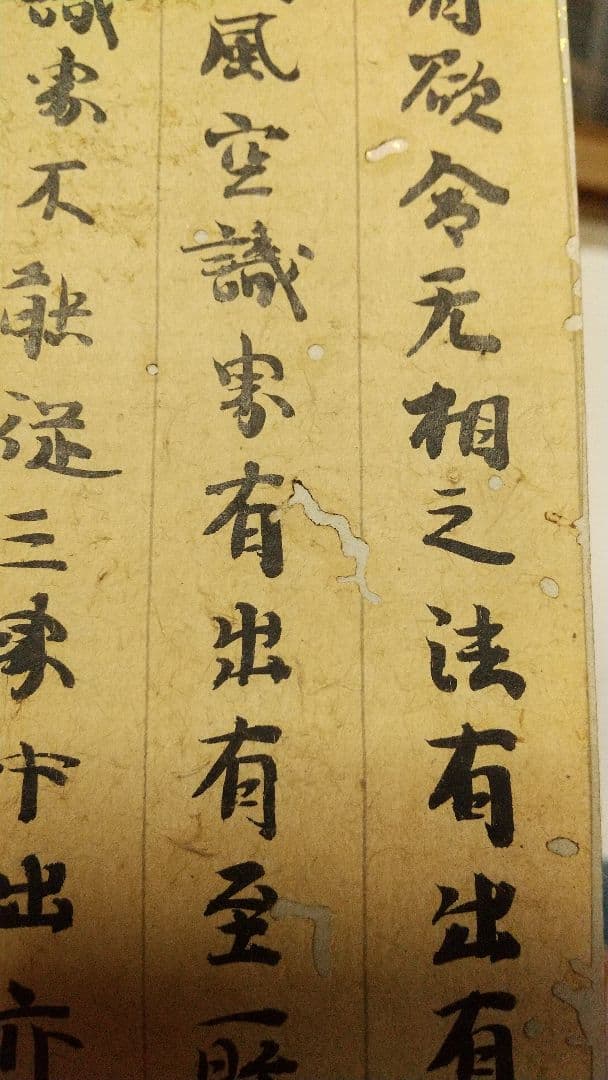 有欲令无相之法有出有
風空識界有出有至
識界不能從三界中出亦